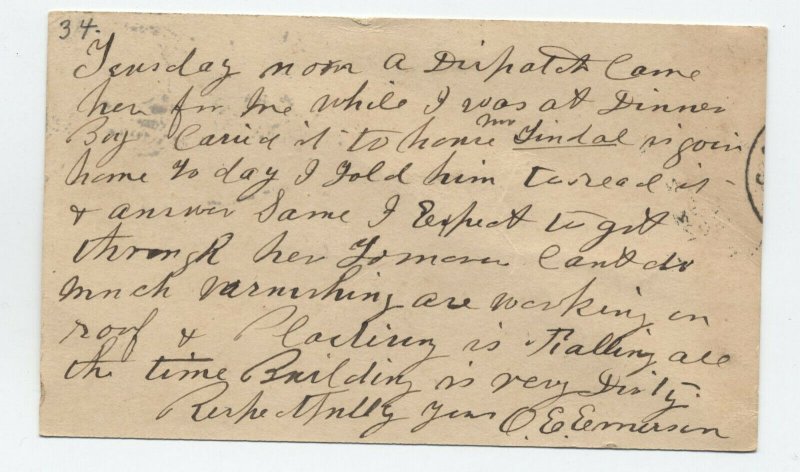 34.
Teusday noon a Dispatch Came
her for me while I was at Dinner
Boy Caried it to home Mr Tindal is goin
home to day I Told him to read it
& answer Same I Expect to get
through her Tomorrow Cant do
much varnishing are working on
roof & Plastirin is Falling all
the time Building is very Dirty.
Respectfully yours O. E. Emerson